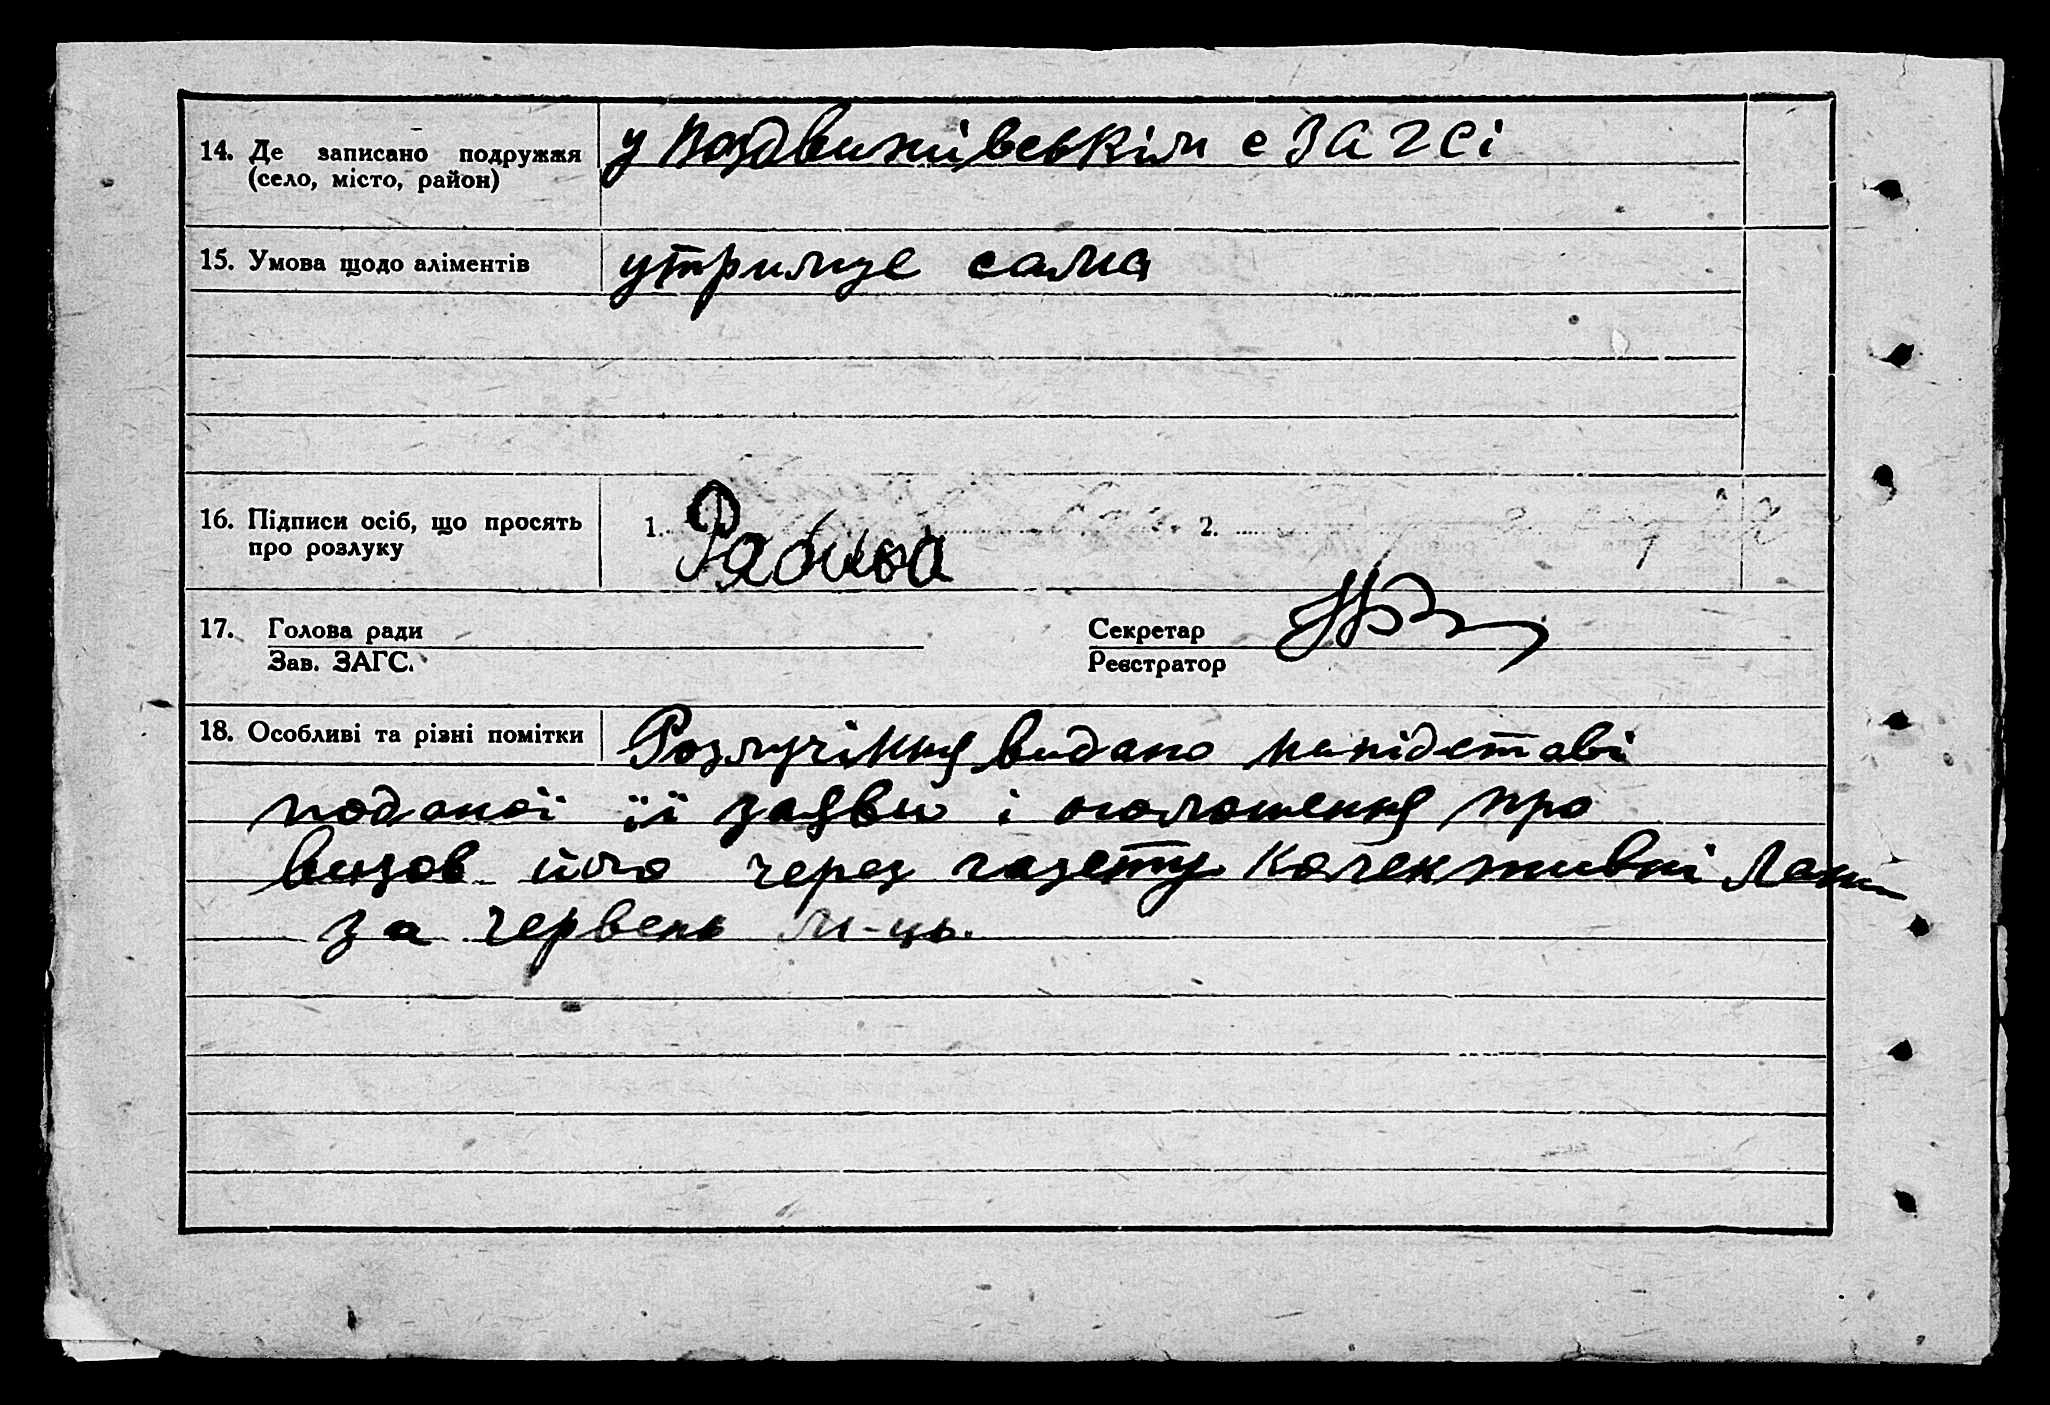 14. Де записано подружжя
(село, місто, район)
у Воздвижівськім с ЗАГСі
15. Умова щодо аліментів
утримує сама
16. Підписи осіб, що просять
про розлуку
1.
2.
17. Голова ради
Зав. ЗАГС.
Секретар
Реєстратор
18. Особливі та різні помітки
Розлучіння видано на підставі
поданої її заяви і оголошення про
визов його через газету Колективні Лани
за червень м-ць.